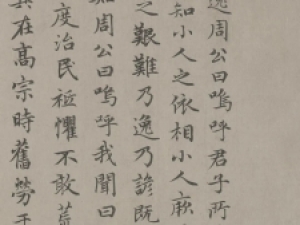 逸周公曰嗚呼君子所
知小人之依相小人厥
之艱難乃逸乃諺既
知周公曰嗚呼我聞曰
度治民祗懼不敢荒
其在高宗時舊勞于